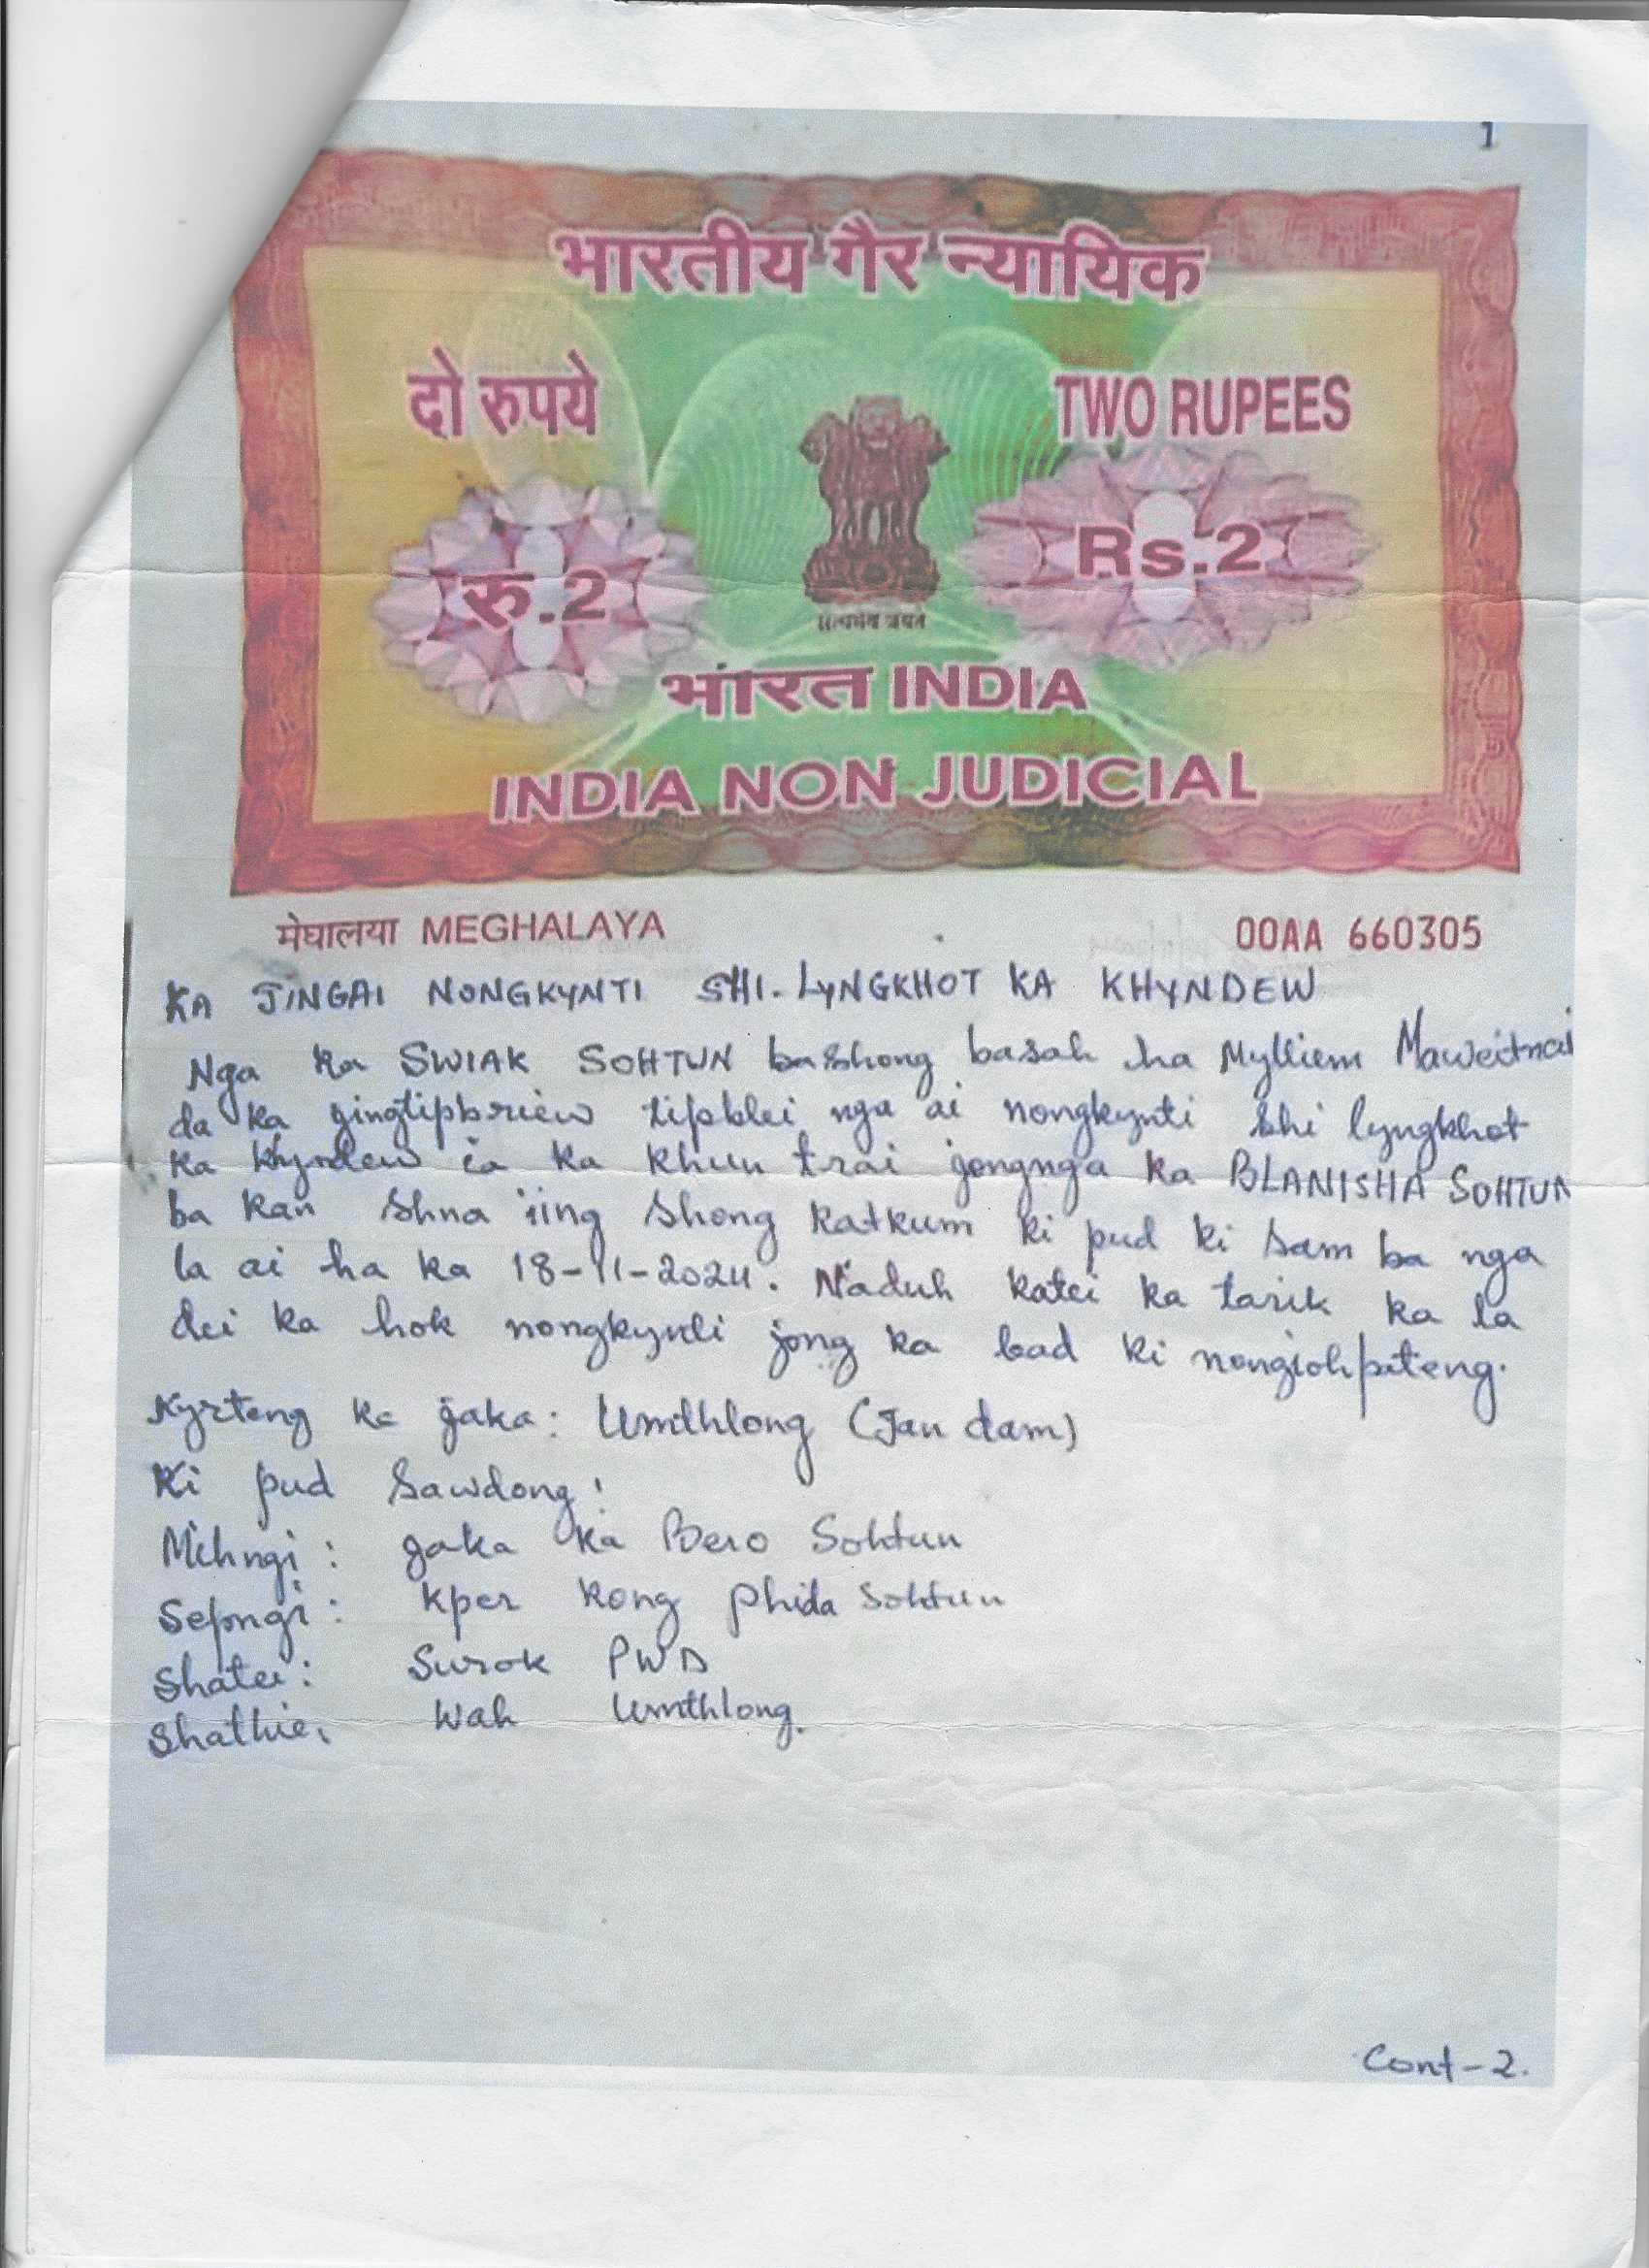 1
भारतीय गैर न्यायिक
दो रुपये
TWO RUPEES
रु.2
Rs.2
सत्यमेव जयते
भारत INDIA
INDIA NON JUDICIAL
मेघालया MEGHALAYA
00AA 660305
KA JINGAI NONGKYNTI SHI-LYNGKHOT KA KHYNDEW
Nga ka SWIAK SOHTUN bashong basah ha Mylliem Maweitnar
da ka jingtipbriew tipblei nga ai nongkynti shi lyngkhot
ka khyndew ia ka khun trai jongnga ka BLANISHA SOHTUN
ba kan shna iing shong katkum ki pud ki sam ba nga
la ai ha ka 18-11-2024. Naduh katei ka tarik ka la
dei ka hok nongkynti jong ka bad ki nongiohpateng.
Kyrteng ka jaka: Umthlong (Jan dam)
Ki pud sawdong:
Mihngi: jaka ka Bero Sohtun
Sepngi: kper kong Phida Sohtun
Shatei: Surok PWD
Shathie: Wah Umthlong.
Cont-2.